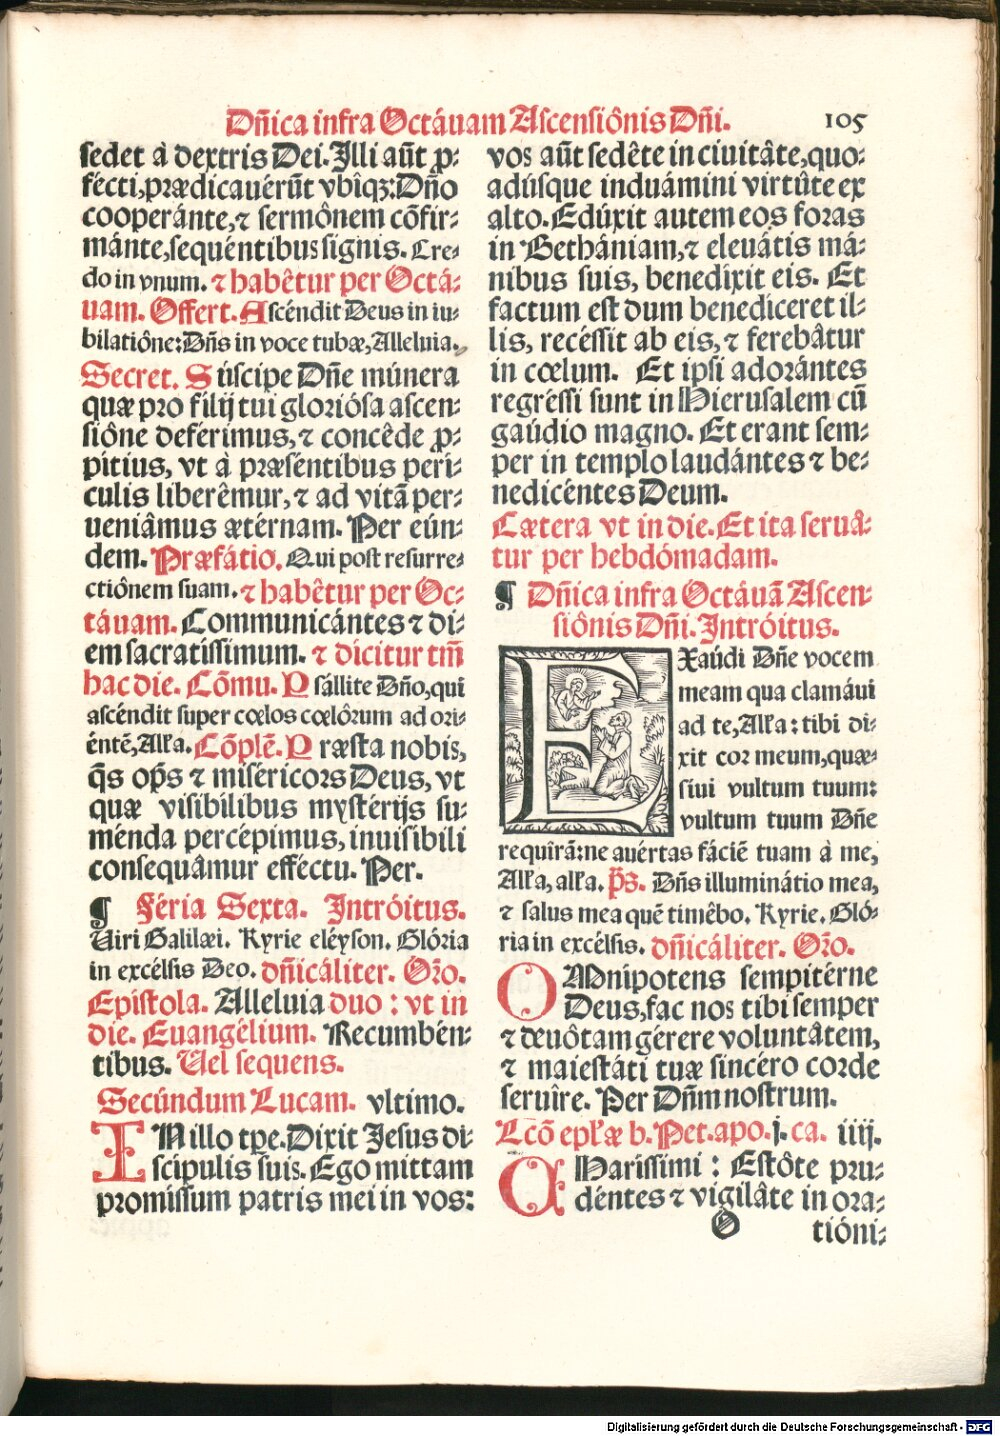 Dñica infra Octáuam Ascensiônis Dñi. 105
sedet à dextris Dei. Illi aũt ꝓ-
fécti, prædicauérũt vbîqꝫ: Dño
cooperánte, ⁊ sermônem cõfir-
mánte, sequéntibus signis. Cre-
do in vnum. ⁊ habêtur per Octá-
uam. Offert. Ascéndit Deus in iu-
bilatiône: Dñs in voce tubæ, Alleluia.
Secret. Súscipe Dñe múnera
quæ pro filij tui gloriósa ascen-
siône deférimus, ⁊ concêde ꝓ-
pitius, vt à præséntibus peri-
culis liberêmur, ⁊ ad vitã per-
ueniâmus ætérnam. Per eún-
dem. Præfátio. Qui post resurre-
ctiônem suam. ⁊ habêtur per Oc-
táuam. Communicántes ⁊ di-
em sacratissimum. ⁊ dicitur tm̃
hac die. Cõmu. Psállite Dño, qui
ascéndit super cœlos cœlôrum ad ori-
éntẽ, Alľa. Cõplẽ. Præsta nobis,
q̃s op̃s ⁊ miséricors Deus, vt
quæ visibilibus mystérijs su-
ménda percépimus, inuisibili
consequâmur efféctu. Per.
¶ Féria Sexta. Intróitus.
Uiri Galilæi. Kyrie eléyson. Glória
in excélsis Deo. dñicáliter. Or̃o.
Epístola. Alleluia duo: vt in
die. Euangélium. Recumbén-
tibus. Uel sequens.
Secúndum Lucam. vltimo.
IN illo tpe. Dixit Jesus di-
scípulis suis. Ego mittam
promissum patris mei in vos:
vos aũt sedête in ciuitâte, quo-
adúsque induámini virtûte ex
alto. Edúxit autem eos foras
in Bethániam, ⁊ eleuátis má-
nibus suis, benedíxit eis. Et
factum est dum benediceret il-
lis, recéssit ab eis, ⁊ ferebâtur
in cœlum. Et ipsi adorántes
regréssi sunt in Hierusalem cũ
gaúdio magno. Et erant sem-
per in templo laudántes ⁊ be-
nedicéntes Deum.
Cætera vt in die. Et ita seruâ-
tur per hebdómadam.
¶ Dñica infra Octáuã Ascen-
siônis Dñi. Intróitus.
EXaúdi Dñe vocem
meam qua clamáui
ad te, Alľa: tibi di-
xit cor meum, quæ-
siui vultum tuum:
vultum tuum Dñe
requîrã: ne auértas fáciẽ tuam à me,
Alľa, alľa. p̃s. Dñs illuminátio mea,
⁊ salus mea quẽ timêbo. Kyrie. Gló-
ria in excélsis. dñicáliter. Or̃o.
OMnípotens sempitérne
Deus, fac nos tibi semper
⁊ deuôtam gérere voluntâtem,
⁊ maiestáti tuæ sincéro corde
seruîre. Per Dñm nostrum.
Lcõ epľæ b. Pet. apo. j. ca. iiij.
CHaríssimi: Estôte pru-
déntes ⁊ vigilâte in ora-
O tióni-
Digitalisierung gefördert durch die Deutsche Forschungsgemeinschaft - DFG